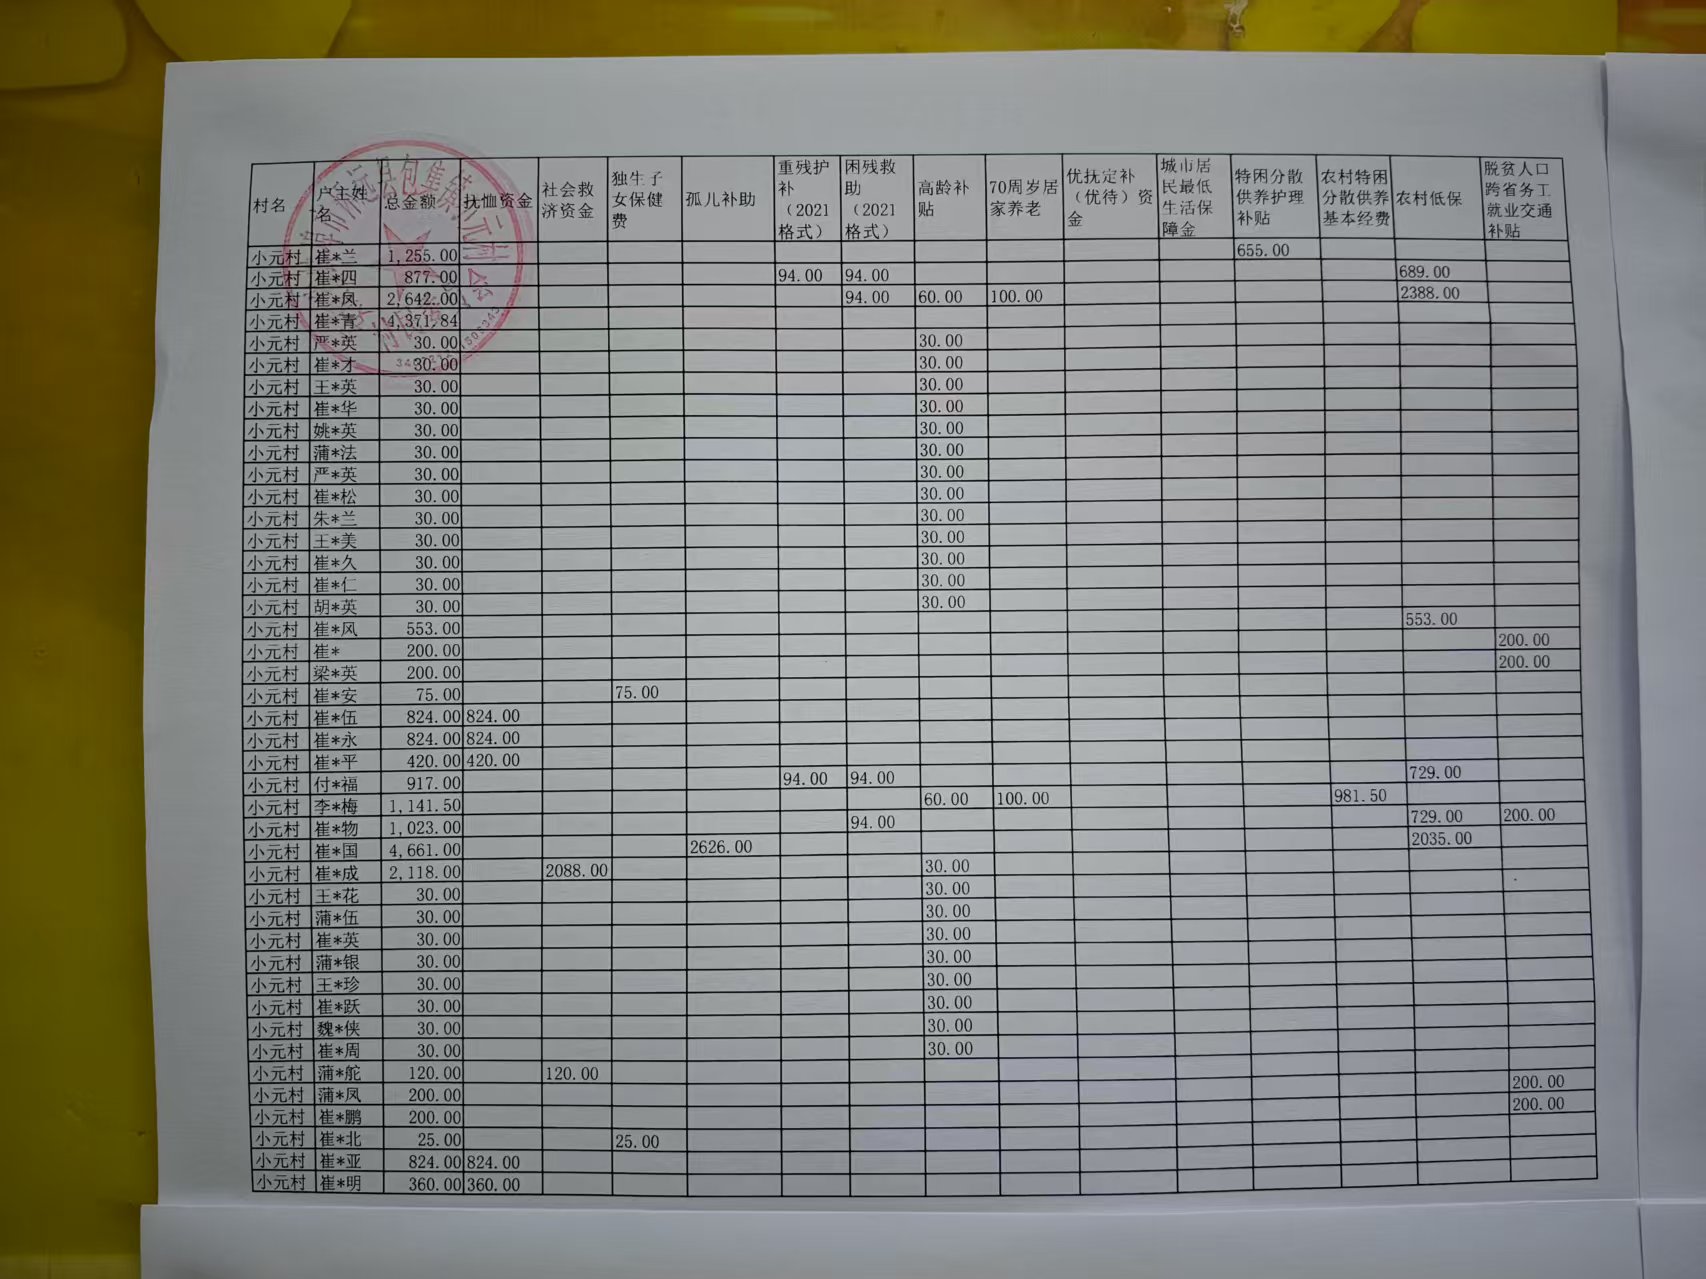 村名 户主姓名 总金额 抚恤资金 社会救济资金 独生子女保健费 孤儿补助 重残护补（2021格式） 困残救助（2021格式） 高龄补贴 70周岁居家养老 优抚定补（优待）资金 城市居民最低生活保障金 特困分散供养护理补贴 农村特困分散供养基本经费 农村低保 脱贫人口跨省务工就业交通补贴
小元村 崔*兰 1,255.00 655.00
小元村 崔*四 877.00 94.00 94.00 689.00
小元村 崔*凤 2,642.00 94.00 60.00 100.00 2388.00
小元村 崔*青 4,371.84
小元村 严*英 30.00 30.00
小元村 崔*才 30.00 30.00
小元村 王*英 30.00 30.00
小元村 崔*华 30.00 30.00
小元村 姚*英 30.00 30.00
小元村 蒲*法 30.00 30.00
小元村 严*英 30.00 30.00
小元村 崔*松 30.00 30.00
小元村 朱*兰 30.00 30.00
小元村 王*美 30.00 30.00
小元村 崔*久 30.00 30.00
小元村 崔*仁 30.00 30.00
小元村 胡*英 30.00 30.00
小元村 崔*风 553.00 553.00
小元村 崔* 200.00 200.00
小元村 梁*英 200.00 200.00
小元村 崔*安 75.00 75.00
小元村 崔*伍 824.00 824.00
小元村 崔*永 824.00 824.00
小元村 崔*平 420.00 420.00
小元村 付*福 917.00 94.00 94.00 729.00
小元村 李*梅 1,141.50 60.00 100.00 981.50
小元村 崔*物 1,023.00 94.00 729.00 200.00
小元村 崔*国 4,661.00 2626.00 2035.00
小元村 崔*成 2,118.00 2088.00 30.00
小元村 王*花 30.00 30.00
小元村 蒲*伍 30.00 30.00
小元村 崔*英 30.00 30.00
小元村 蒲*银 30.00 30.00
小元村 王*珍 30.00 30.00
小元村 崔*跃 30.00 30.00
小元村 魏*侠 30.00 30.00
小元村 崔*周 30.00 30.00
小元村 蒲*舵 120.00 120.00
小元村 蒲*凤 200.00 200.00
小元村 崔*鹏 200.00 200.00
小元村 崔*北 25.00 25.00
小元村 崔*亚 824.00 824.00
小元村 崔*明 360.00 360.00